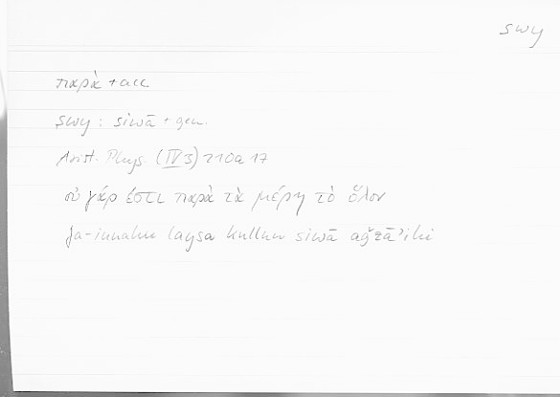 swy
παρὰ + acc
swy : siwā + gen.
Arist. Phys. (IV 3) 210a 17
οὐ γάρ ἐστι παρὰ τὰ μέρη τὸ ὅλον
fa-innahu laysa kullun siwā aǧzā'ihi